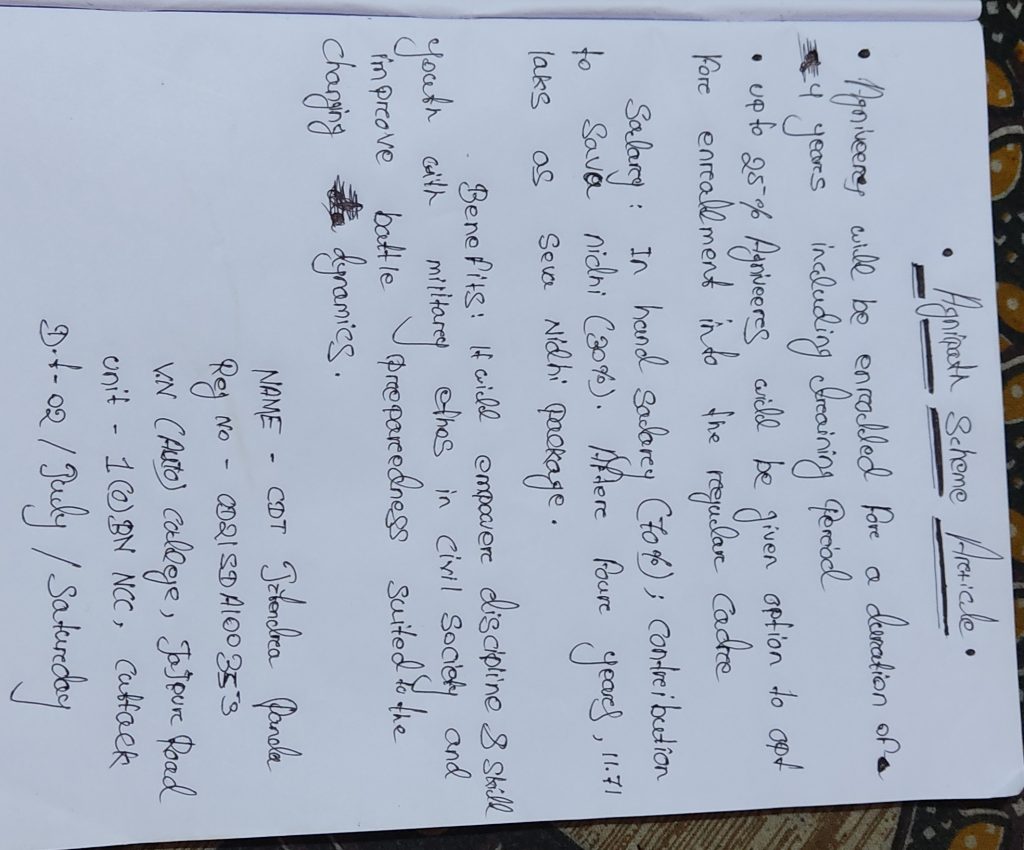 • Agnipath Scheme Areticle •
• Agniveers will be enrealled fore a duration of
4 years including treaining Period
• up to 25% Agniveeres will be given option to opt
fore enreallment into the regulare Cadre
Salary : In hand Salarey (70%); contreibution
to Sava nidhi (30%). Aftere foure years, 11.71
laks as Seva Nidhi package.
Benefits: It will empowere discipline & skill
youth with militarey ethos in civil Society and
impreove battle prepareedness suited to the
changing dynamics.
NAME - CDT Jitendrea Panda
Reg No - OD21SDA100353
V.N (Auto) college, Jajpure Road
unit - 1(O)BN NCC, cuttack
D.t - 02 / July / Satureday